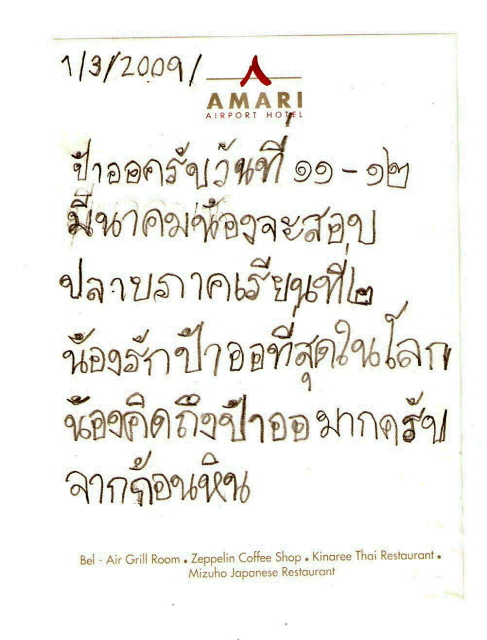 1/3/2009/
AMARI
AIRPORT HOTEL
ป้าออครับวันที่ ๑๑ - ๑๒
มีนาคมน้องจะสอบ
ปลายภาคเรียนที่๒
น้องรักป้าออที่สุดในโลก
น้องคิดถึงป้าออ มากครับ
จากก้อนหิน
Bel - Air Grill Room • Zeppelin Coffee Shop • Kinaree Thai Restaurant •
Mizuho Japanese Restaurant